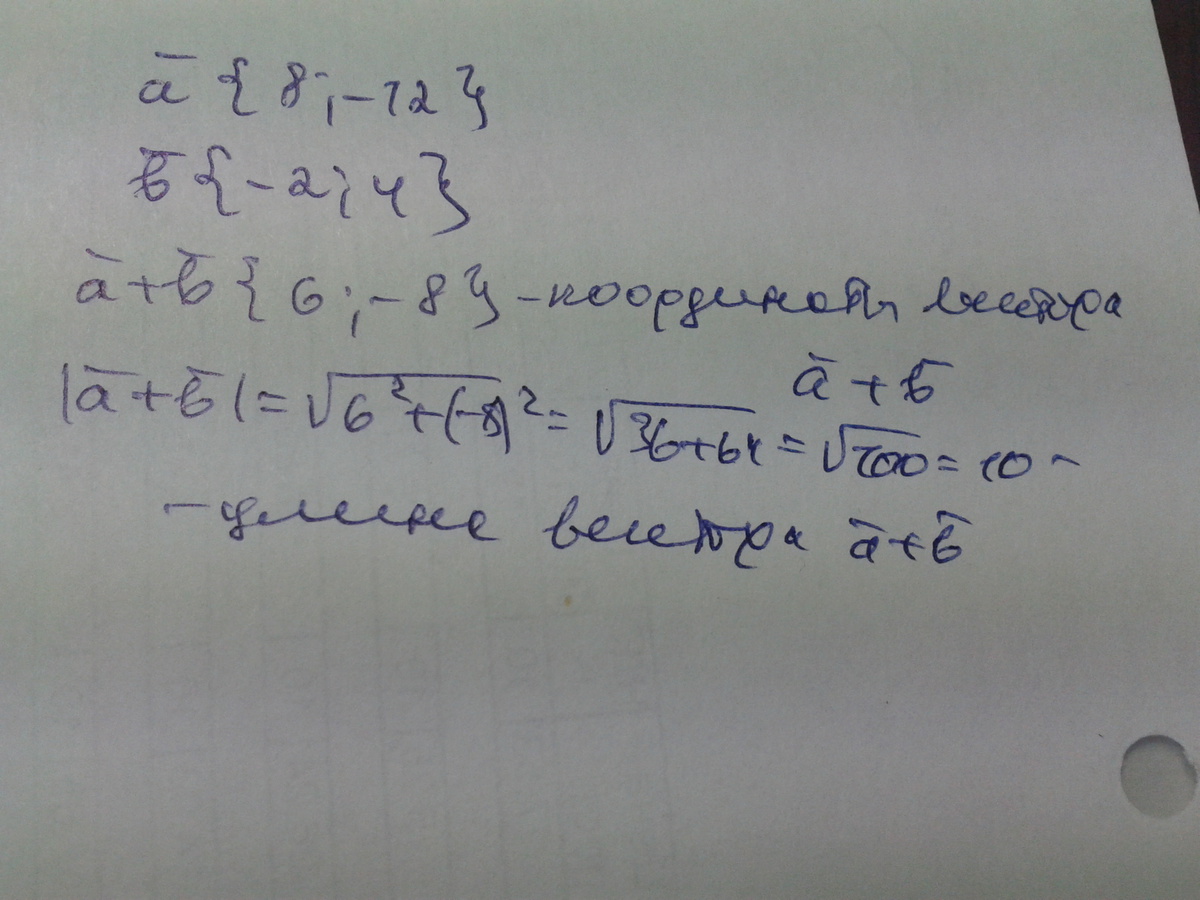 ā {8; -12}
b̄ {-2; 4}
ā + b̄ {6; -8} - координаты вектора
ā + b̄
|ā + b̄| = √6² + (-8)² = √36+64 = √100 = 10 -
- длина вектора ā + b̄